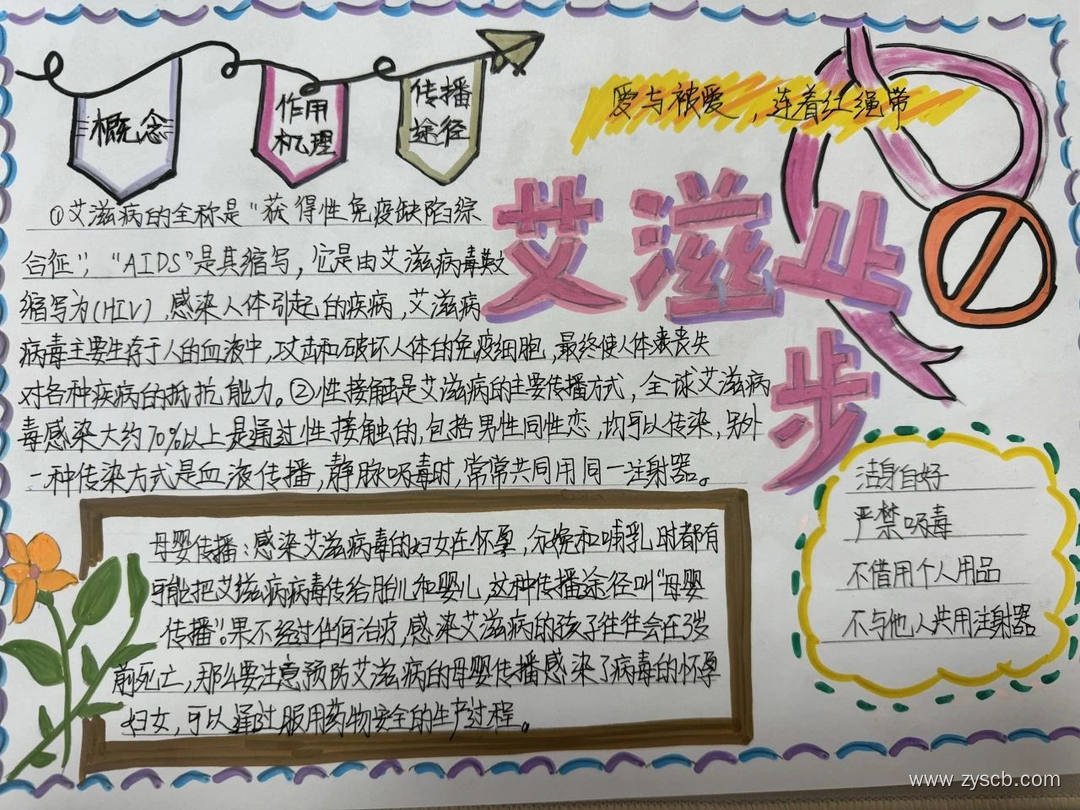 概念
作用
机理
传播
途径
爱与被爱，连着红绳带
艾滋止
步
①艾滋病的全称是“获得性免疫缺陷综
合征”，“AIDS”是其缩写，它是由艾滋病毒英文
缩写为(HIV)，感染人体引起的疾病，艾滋病
病毒主要生存于人的血液中，攻击和破坏人体的免疫细胞，最终使人体丧失
对各种疾病的抵抗能力。②性接触是艾滋病的主要传播方式，全球艾滋病
毒感染大约70%以上是通过性接触的，包括男性同性恋，均可以传染，另外
一种传染方式是血液传播，静脉吸毒时，常常共同用同一注射器。
母婴传播：感染艾滋病毒的妇女在怀孕，分娩和哺乳时都有
可能把艾滋病病毒传给胎儿和婴儿，这种传播途径叫“母婴
传播”。果不经过任何治疗，感染艾滋病的孩子往往会在3岁
前死亡，那么要注意预防艾滋病的母婴传播感染了病毒的怀孕
妇女，可以通过服用药物安全的生产过程。
洁身自好
严禁吸毒
不借用个人用品
不与他人共用注射器
www.zyscb.com